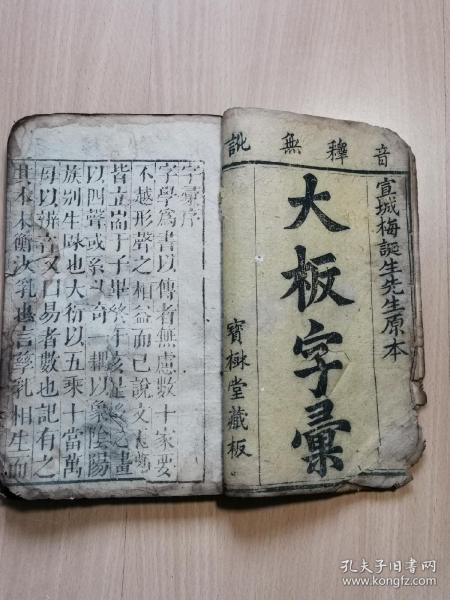 音釋無訛
宣城梅誕生先生原本
大板字彙
寶樹堂藏板
字彙序
字學爲書以傳者無慮數十家要
不越形聲之相益而已說文
皆立耑于子畢終于亥
以四聲或系之奇一耦以象陰陽
族别生
母以辨音又曰易者數也記有之
言孳乳相生而
孔夫子旧书网
www.kongfz.com